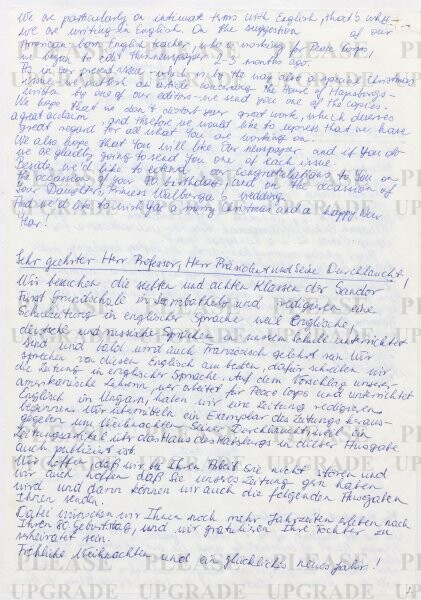 We are particularly on intimate terms with English, that's why
we are writing in English. On the suggestion of our
American-born English teacher, who is working for Peace Corps,
we began to edit this newspaper 2-3 months ago.
As in our present issue - which is by the way also a special Christmas
issue - we publish an article concerning the House of Hapsburgs -
written by one of our editors - we send you one of the copies.
We hope that we don't disturb your great work, which deserves
great acclaim and therefore we would like to express that we have
great regard for all what You are working on.
We also hope that You will like Our newspaper and if You do
we are gladly going to send You one of each issue.
Beside, we'd like to extend our congratulations to You on
the occasion of your 80 birthday, and on the occasion of
Your Daughter, Princess Walburga's wedding.
And we'd like to wish You a merry Christmas and a happy New
Year!
Sehr geehrter Herr Professor, Herr Präsident und Seine Durchlaucht!
Wir besuchen die siebten und achten Klassen der Sandor
Fürst Grundschule in Szombathely und redigieren eine
Schulzeitung in englischer Sprache weil Englische,
deutsche und russische Sprachen in unserer Schule unterrichtet
sind und bald wird auch Französisch gelehrt sein. Wir
sprechen von diesen Englisch am besten, dafür schreiben wir
die Zeitung in englischer Sprache. Auf dem Vorschlag unserer
amerikanische Lehrerin, wer arbeitet für Peace Corps und unterrichtet
Englisch in Ungarn, haben wir eine Zeitung redigieren
begonnen. Wir übermitteln ein Exemplar des Zeitungs heraus-
gegeben um Weihnachten Seiner Durchlaucht, weil ein
Zeitungsartikel über das Haus des Habsburgs in dieser Ausgabe
auch publiziert ist.
Wir hoffen, daß wir in Ihren Arbeit Sie nicht stören und
wir auch hoffen daß Sie unseres Zeitung gern haben
wird und dann können wir auch die folgenden Ausgaben
Ihnen senden.
Dabei wünschen wir Ihnen noch mehr Jahrzeiten erleben nach
Ihren 80 Geburtstag, und wir gratulieren Ihre Tochter zu
verheiratet sein.
Fröhliche Weihnachten und ein glückliches neues Jahr!
PLEASE UPGRADE